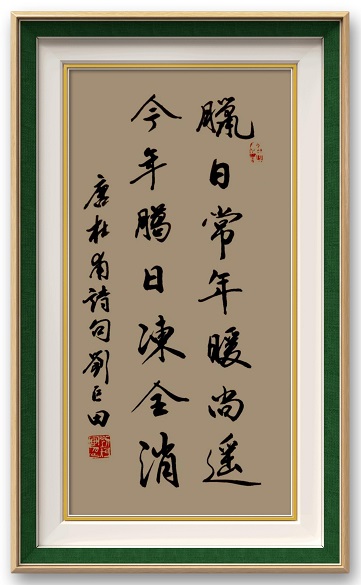 臘日常年暖尚遥
今年臘日凍全消
唐杜甫詩句劉巨田